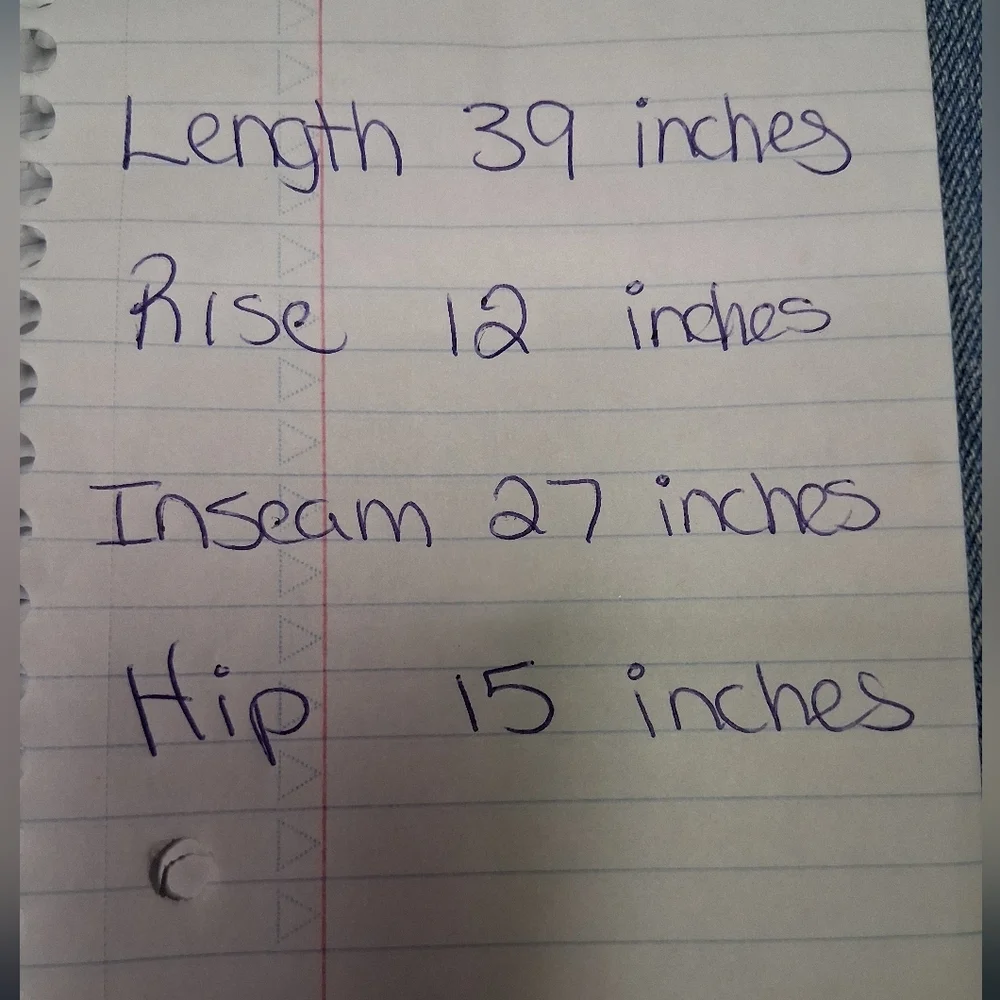 Length 39 inches
Rise 12 inches
Inseam 27 inches
Hip 15 inches